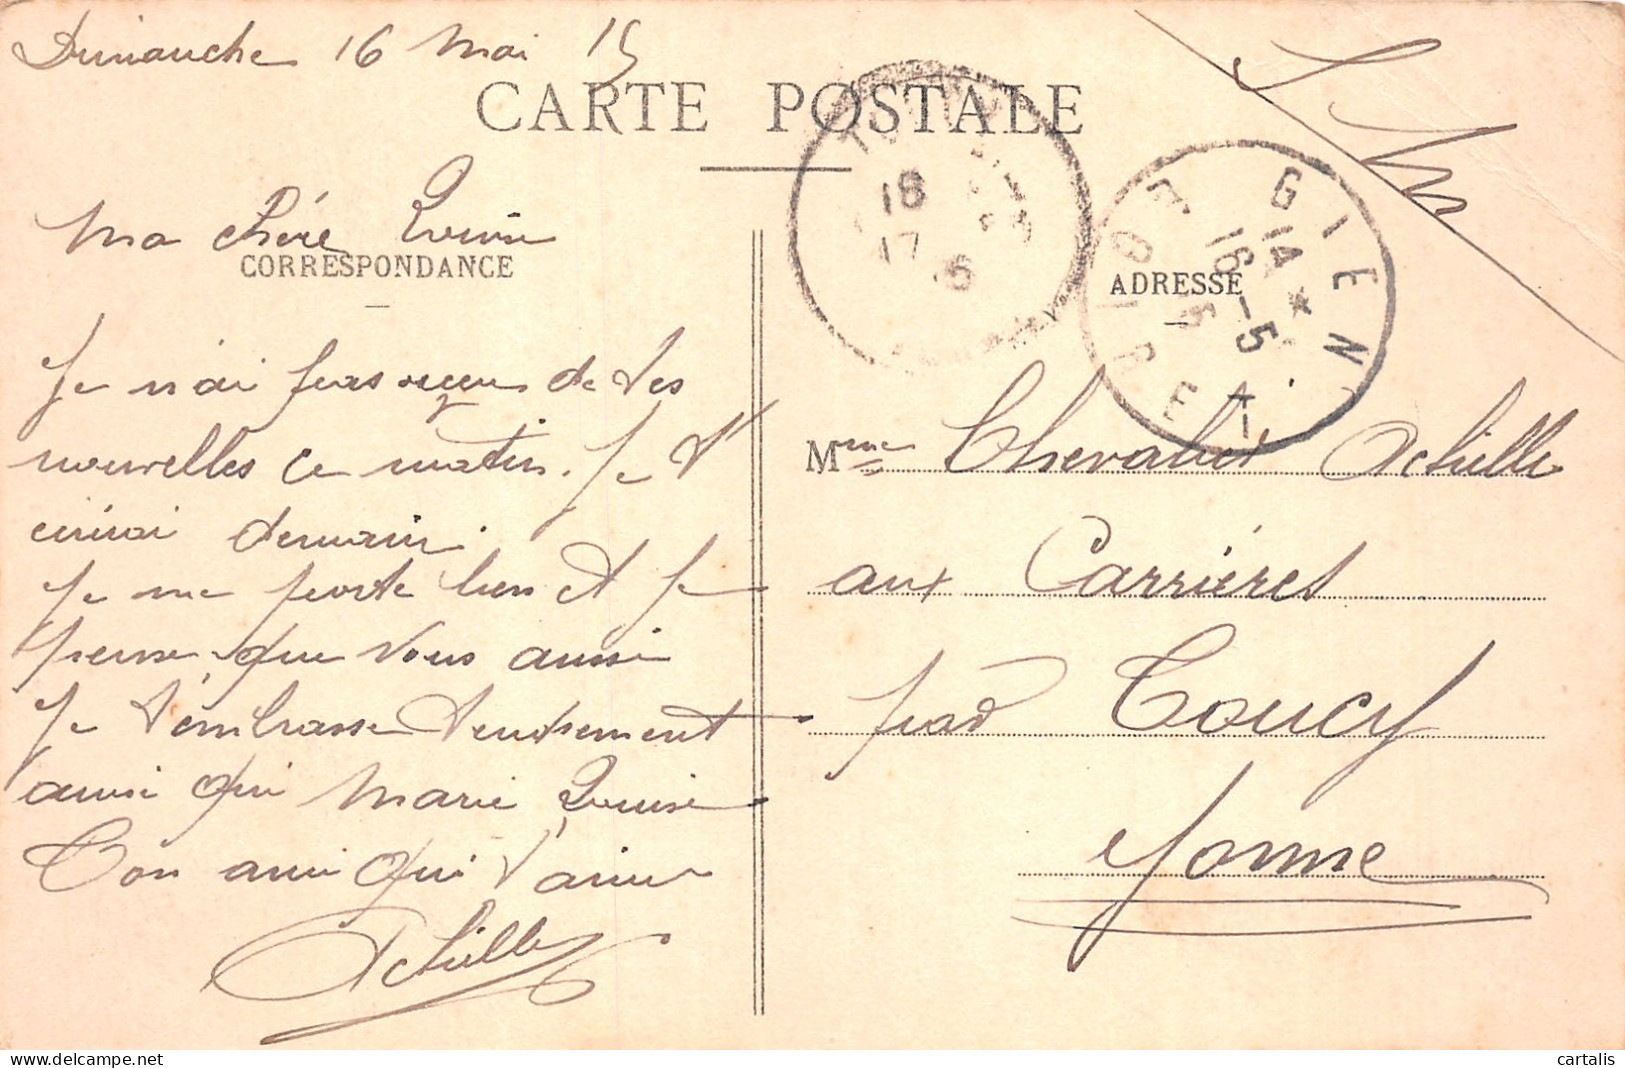 Dimanche 16 Mai 15
CARTE POSTALE
Ma chére Louise
CORRESPONDANCE
Je n'ai pas reçu de tes
nouvelles ce matin. Je t'
écrirai demain.
Je me porte bien et je
pense que vous aussi
Je t'embrasse tendrement
ainsi que Marie Louise
Ton ami qui t'aime
Achille
S. M.
18
17
GIEN
14
16-5
15
LOIRET
ADRESSE
Mme Chevalier Achille
aux Carriéres
par Toucy
Yonne
cartalis